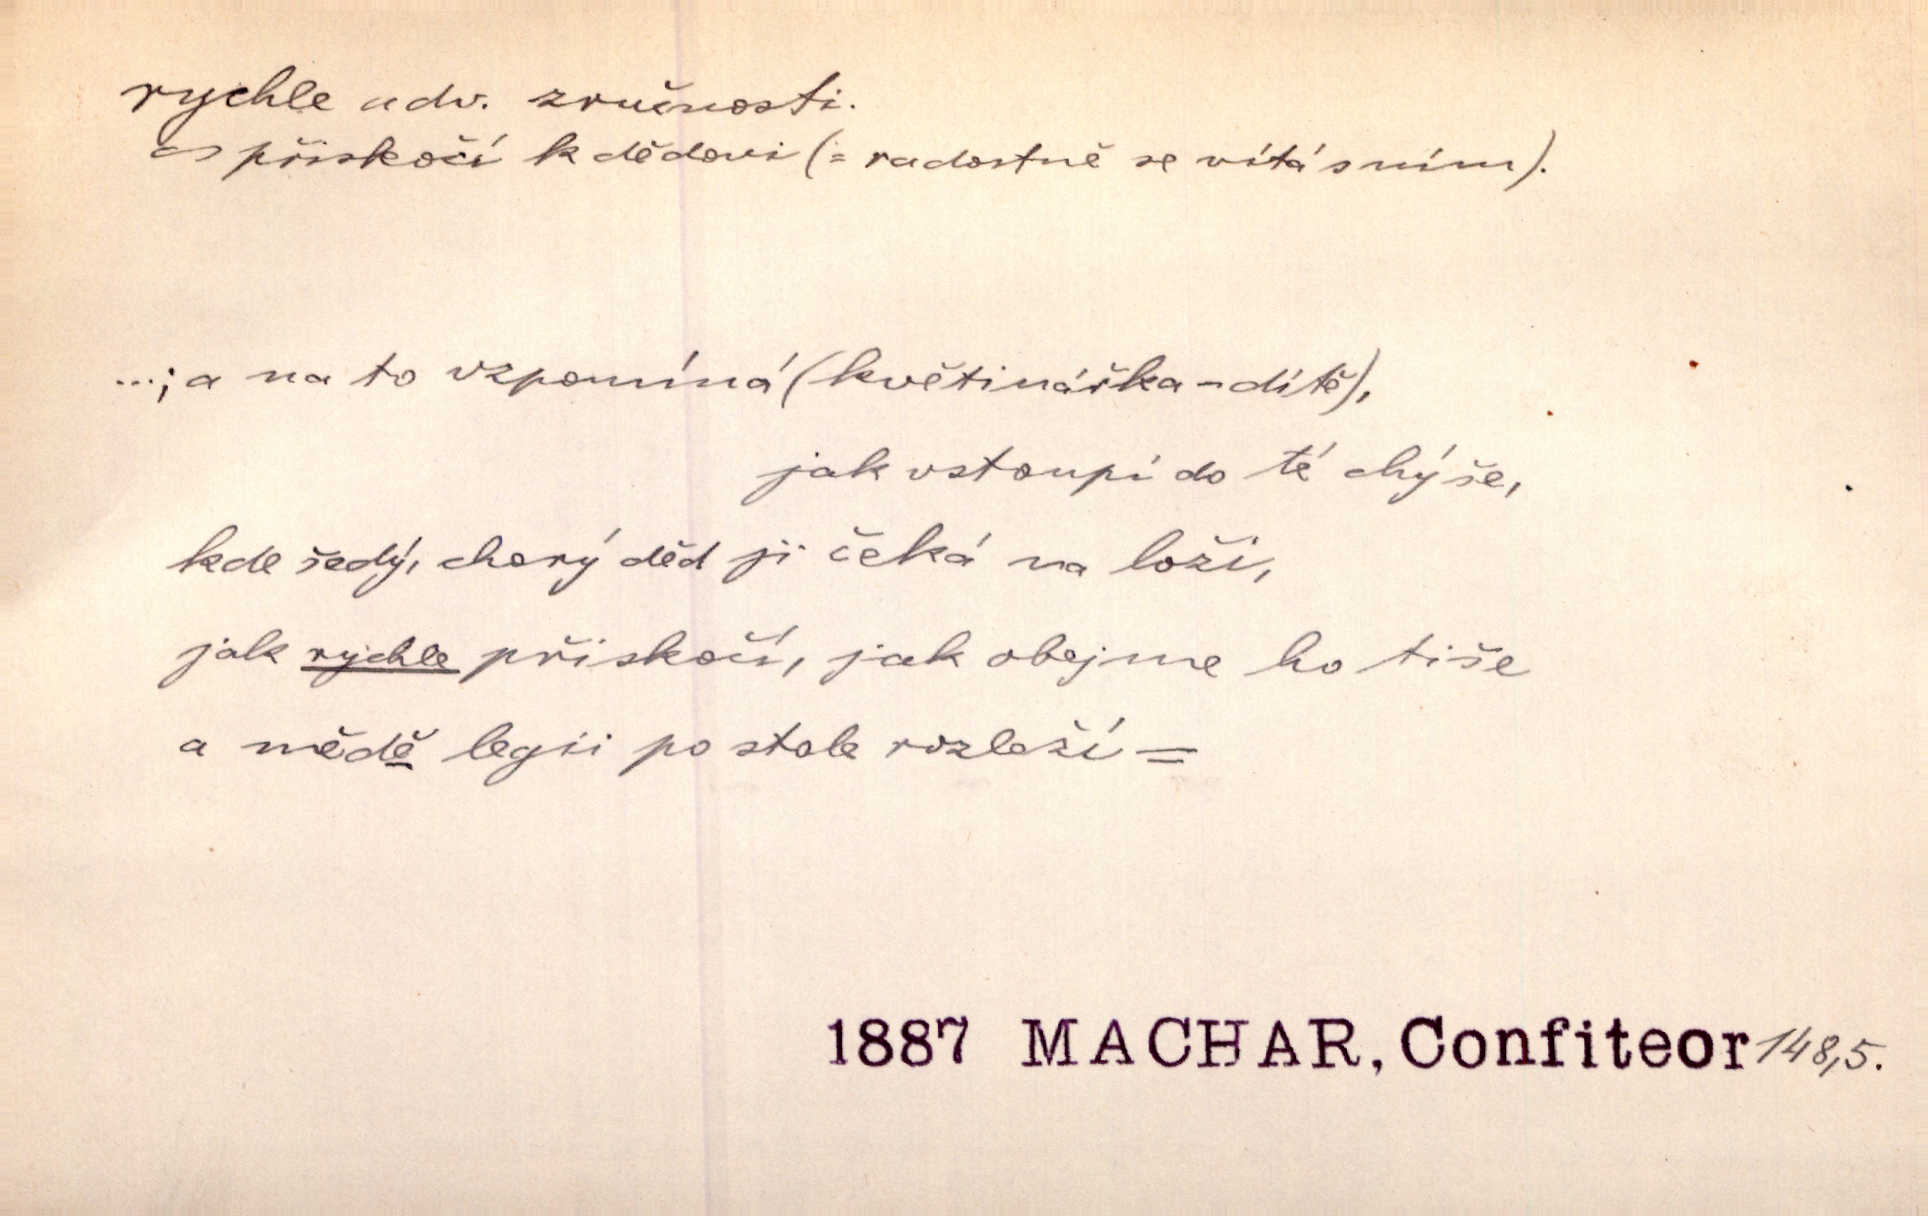 rychle adv. zručnosti.
∽ přiskočí k dědovi (= radostně se vítá s ním).
...; a na to vzpomíná (květinářka - dítě),
jak vstoupí do té chýše,
kde šedý, chorý děd ji čeká na loži,
jak rychle přiskočí, jak obejme ho tiše
a mědě legii po stole rozloží =
1887 MACHAR, Confiteor 148,5.